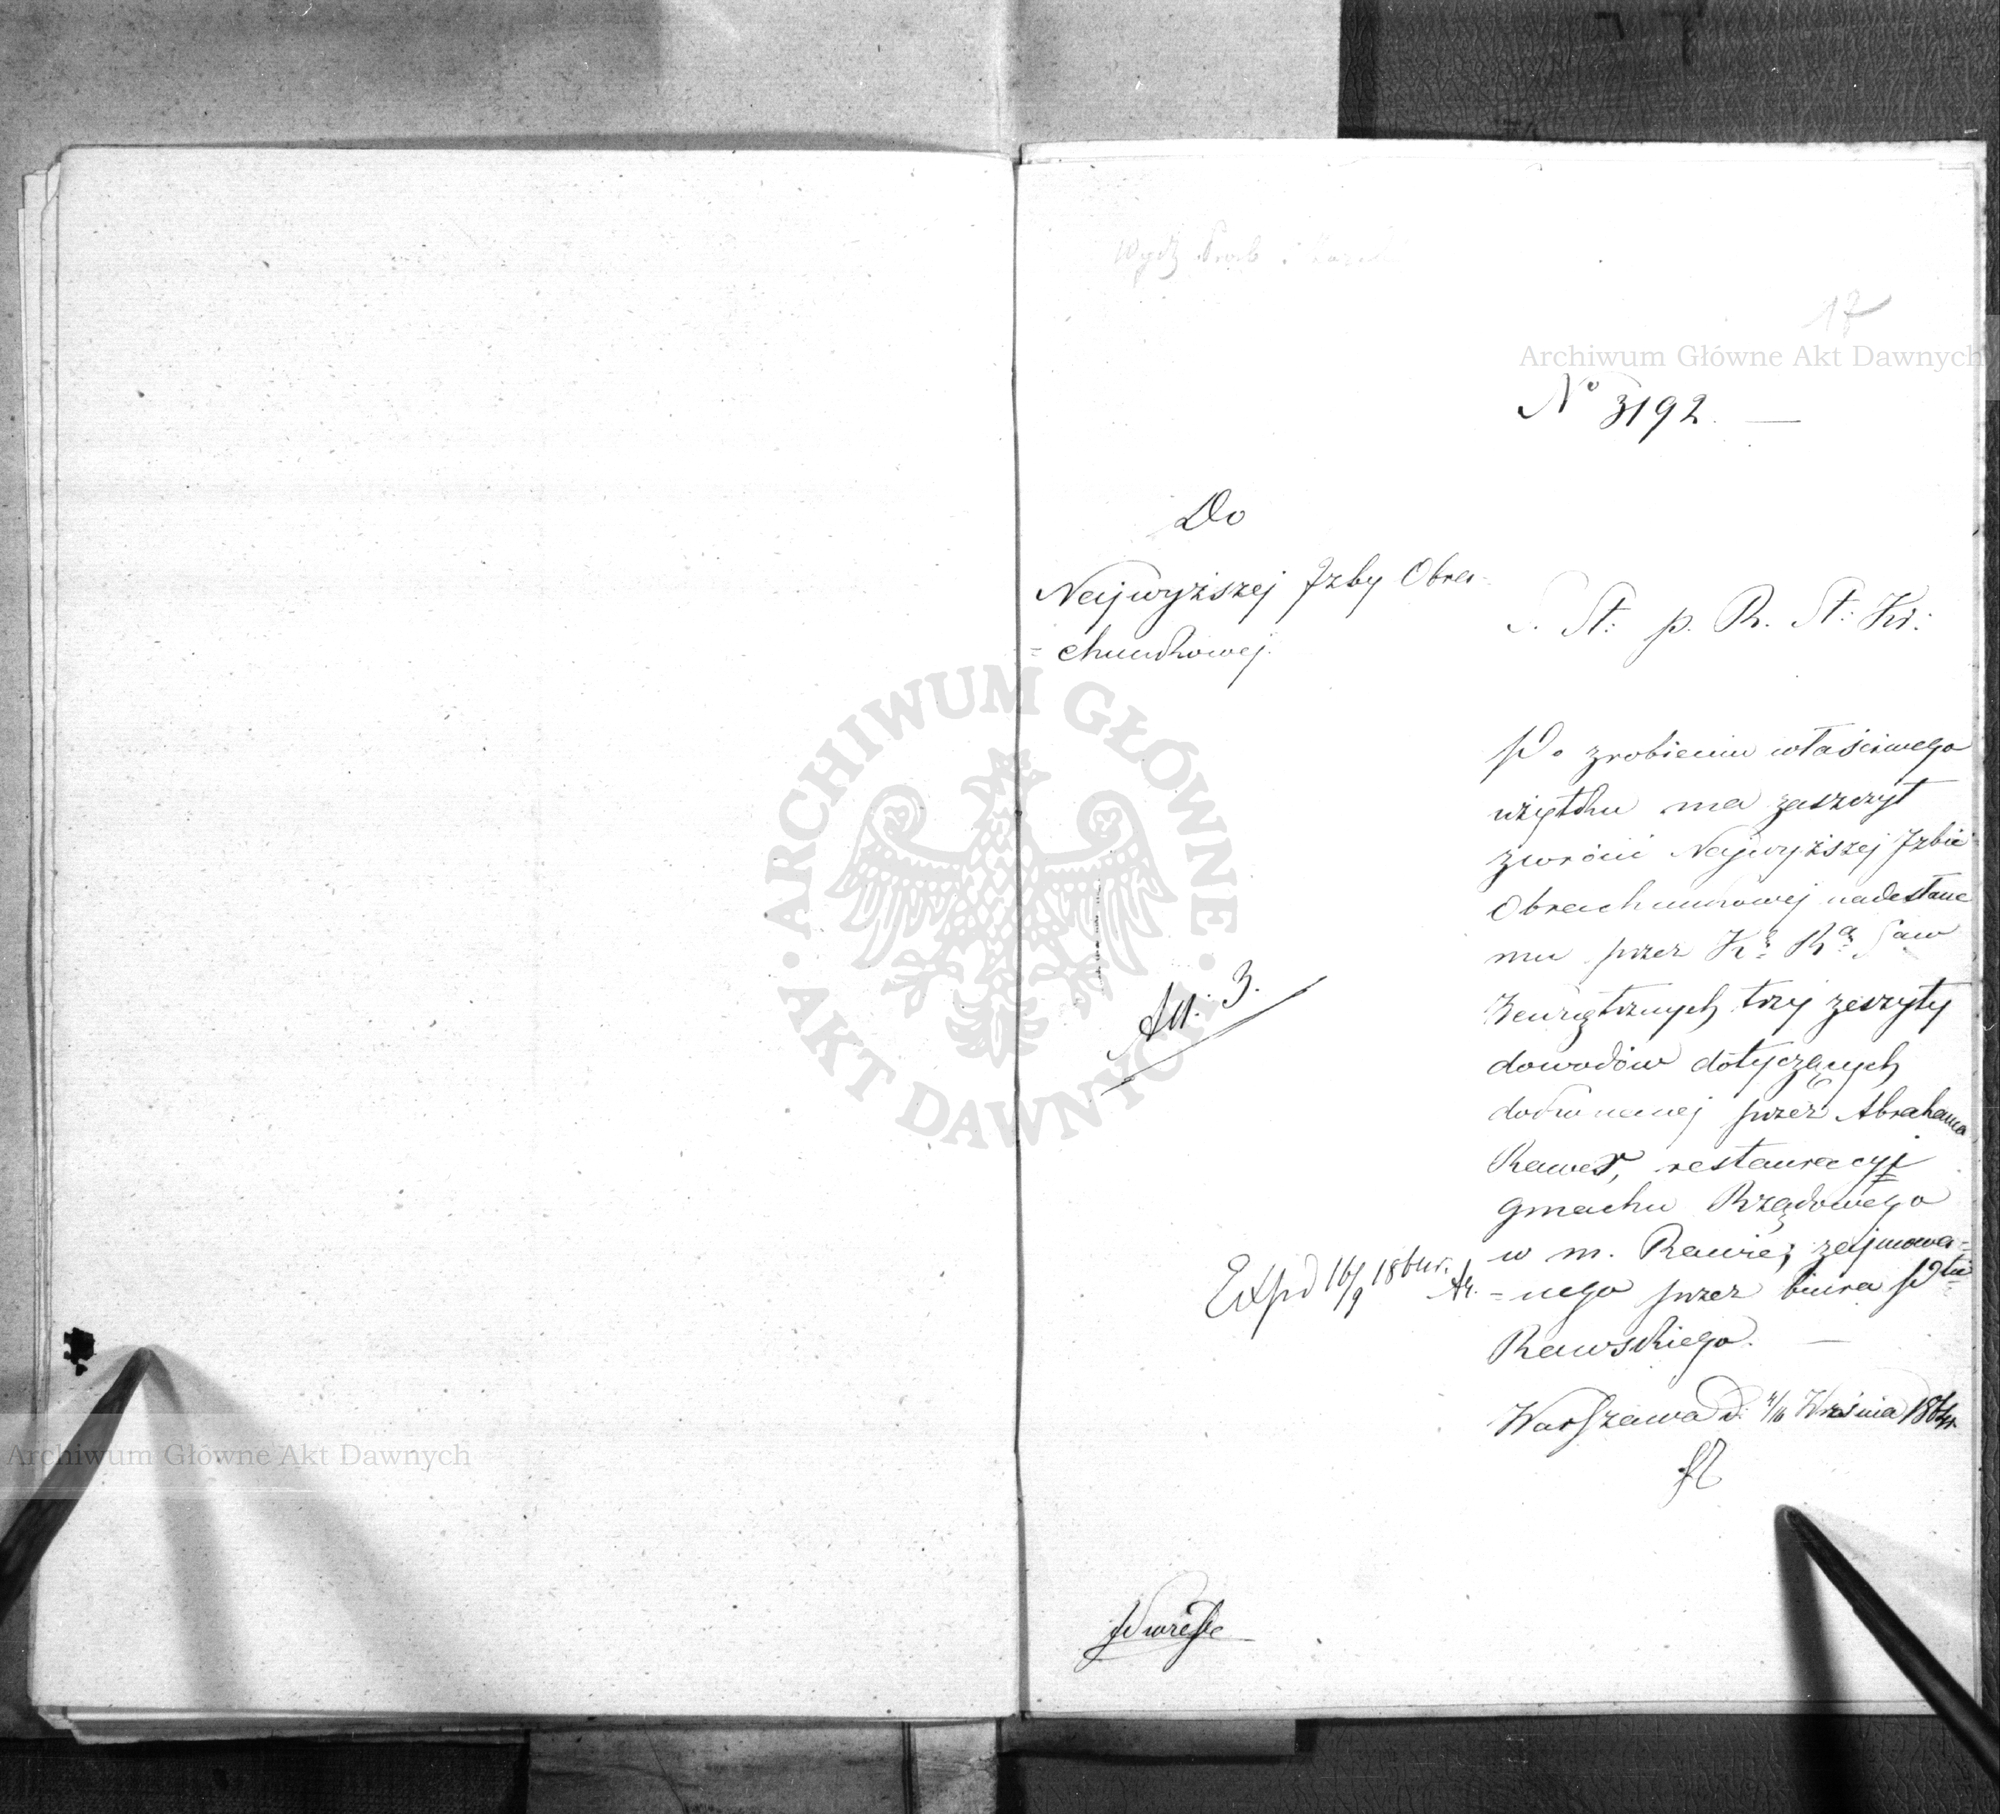 Wydz Prośb i
17
Archiwum Główne Akt Dawnych
No 3192. —
Do
Najwyższej Izby Obra-
=chunkowej.
S. St: p. R. St: Kr:
Po zrobieniu właściwego
użytku ma zaszczyt
zwrócić Najwyższej Izbie
Obrachunkowej nadesłane
mu przez Kę Rą Spraw
Wewnętrznych trzy zeszyty
dowodów dotyczących
dokonanej przez Abrahama
Rawer, restauracyi
gmachu Rządowego
w m. Rawie, zajmowa=
=nego przez biura Ptu
Rawskiego. —
Warszawa d. 4/16 Września 1864 r.
All: 3.
Exped 16/9 1864 r.
ARCHIWUM GŁÓWNE
AKT DAWNYCH
Archiwum Główne Akt Dawnych